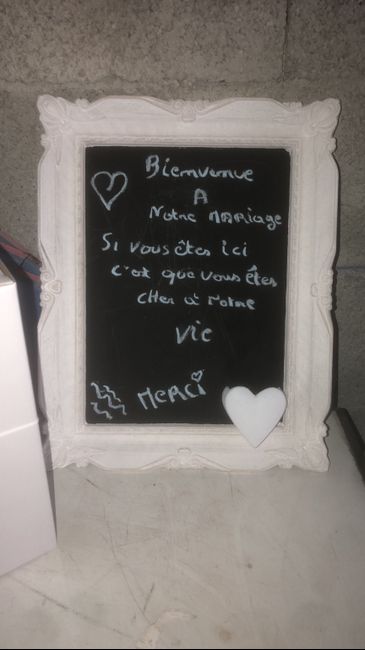 Bienvenue
A
Notre MARiage
Si vous êtes ici
c'est que vous êtes
cher à notre
vie
MERCi